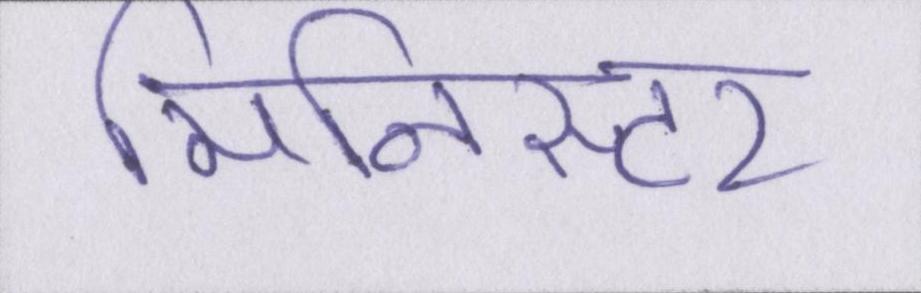 मिनिस्टर